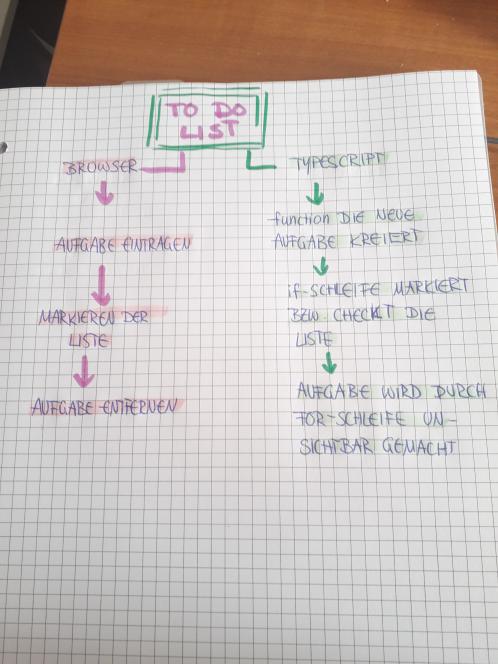 TO DO
LIST
BROWSER
AUFGABE EINTRAGEN
MARKIEREN DER
LISTE
AUFGABE ENTFERNEN
TYPESCRIPT
function DIE NEUE
AUFGABE KREIERT
if-SCHLEIFE MARKIERT
BZW. CHECKT DIE
LISTE
AUFGABE WIRD DURCH
FOR-SCHLEIFE UN-
SICHTBAR GEMACHT